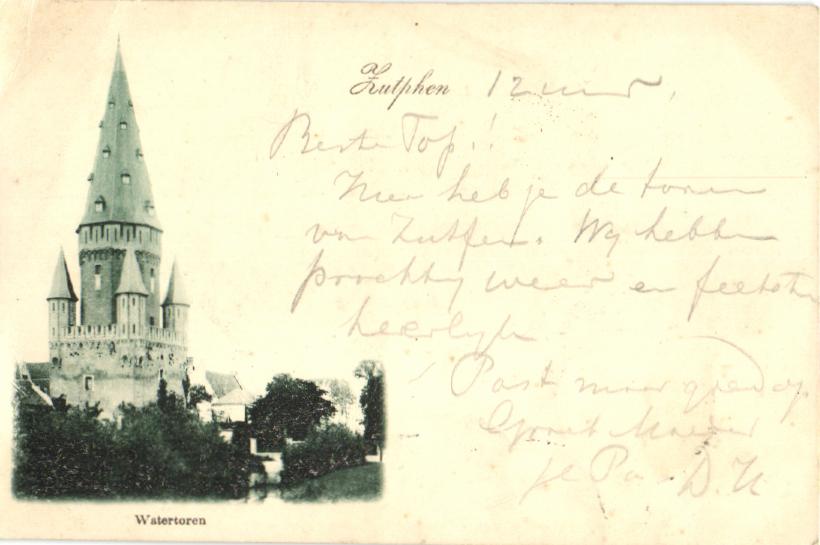 Zutphen 12 uur.
Beste Top!!
Hier heb je de toren
van Zutfen. Wij hebben
prachtig weer en fietsten
heerlijk
Past maar goed op
Groet Moeder
je Pa D.H
Watertoren